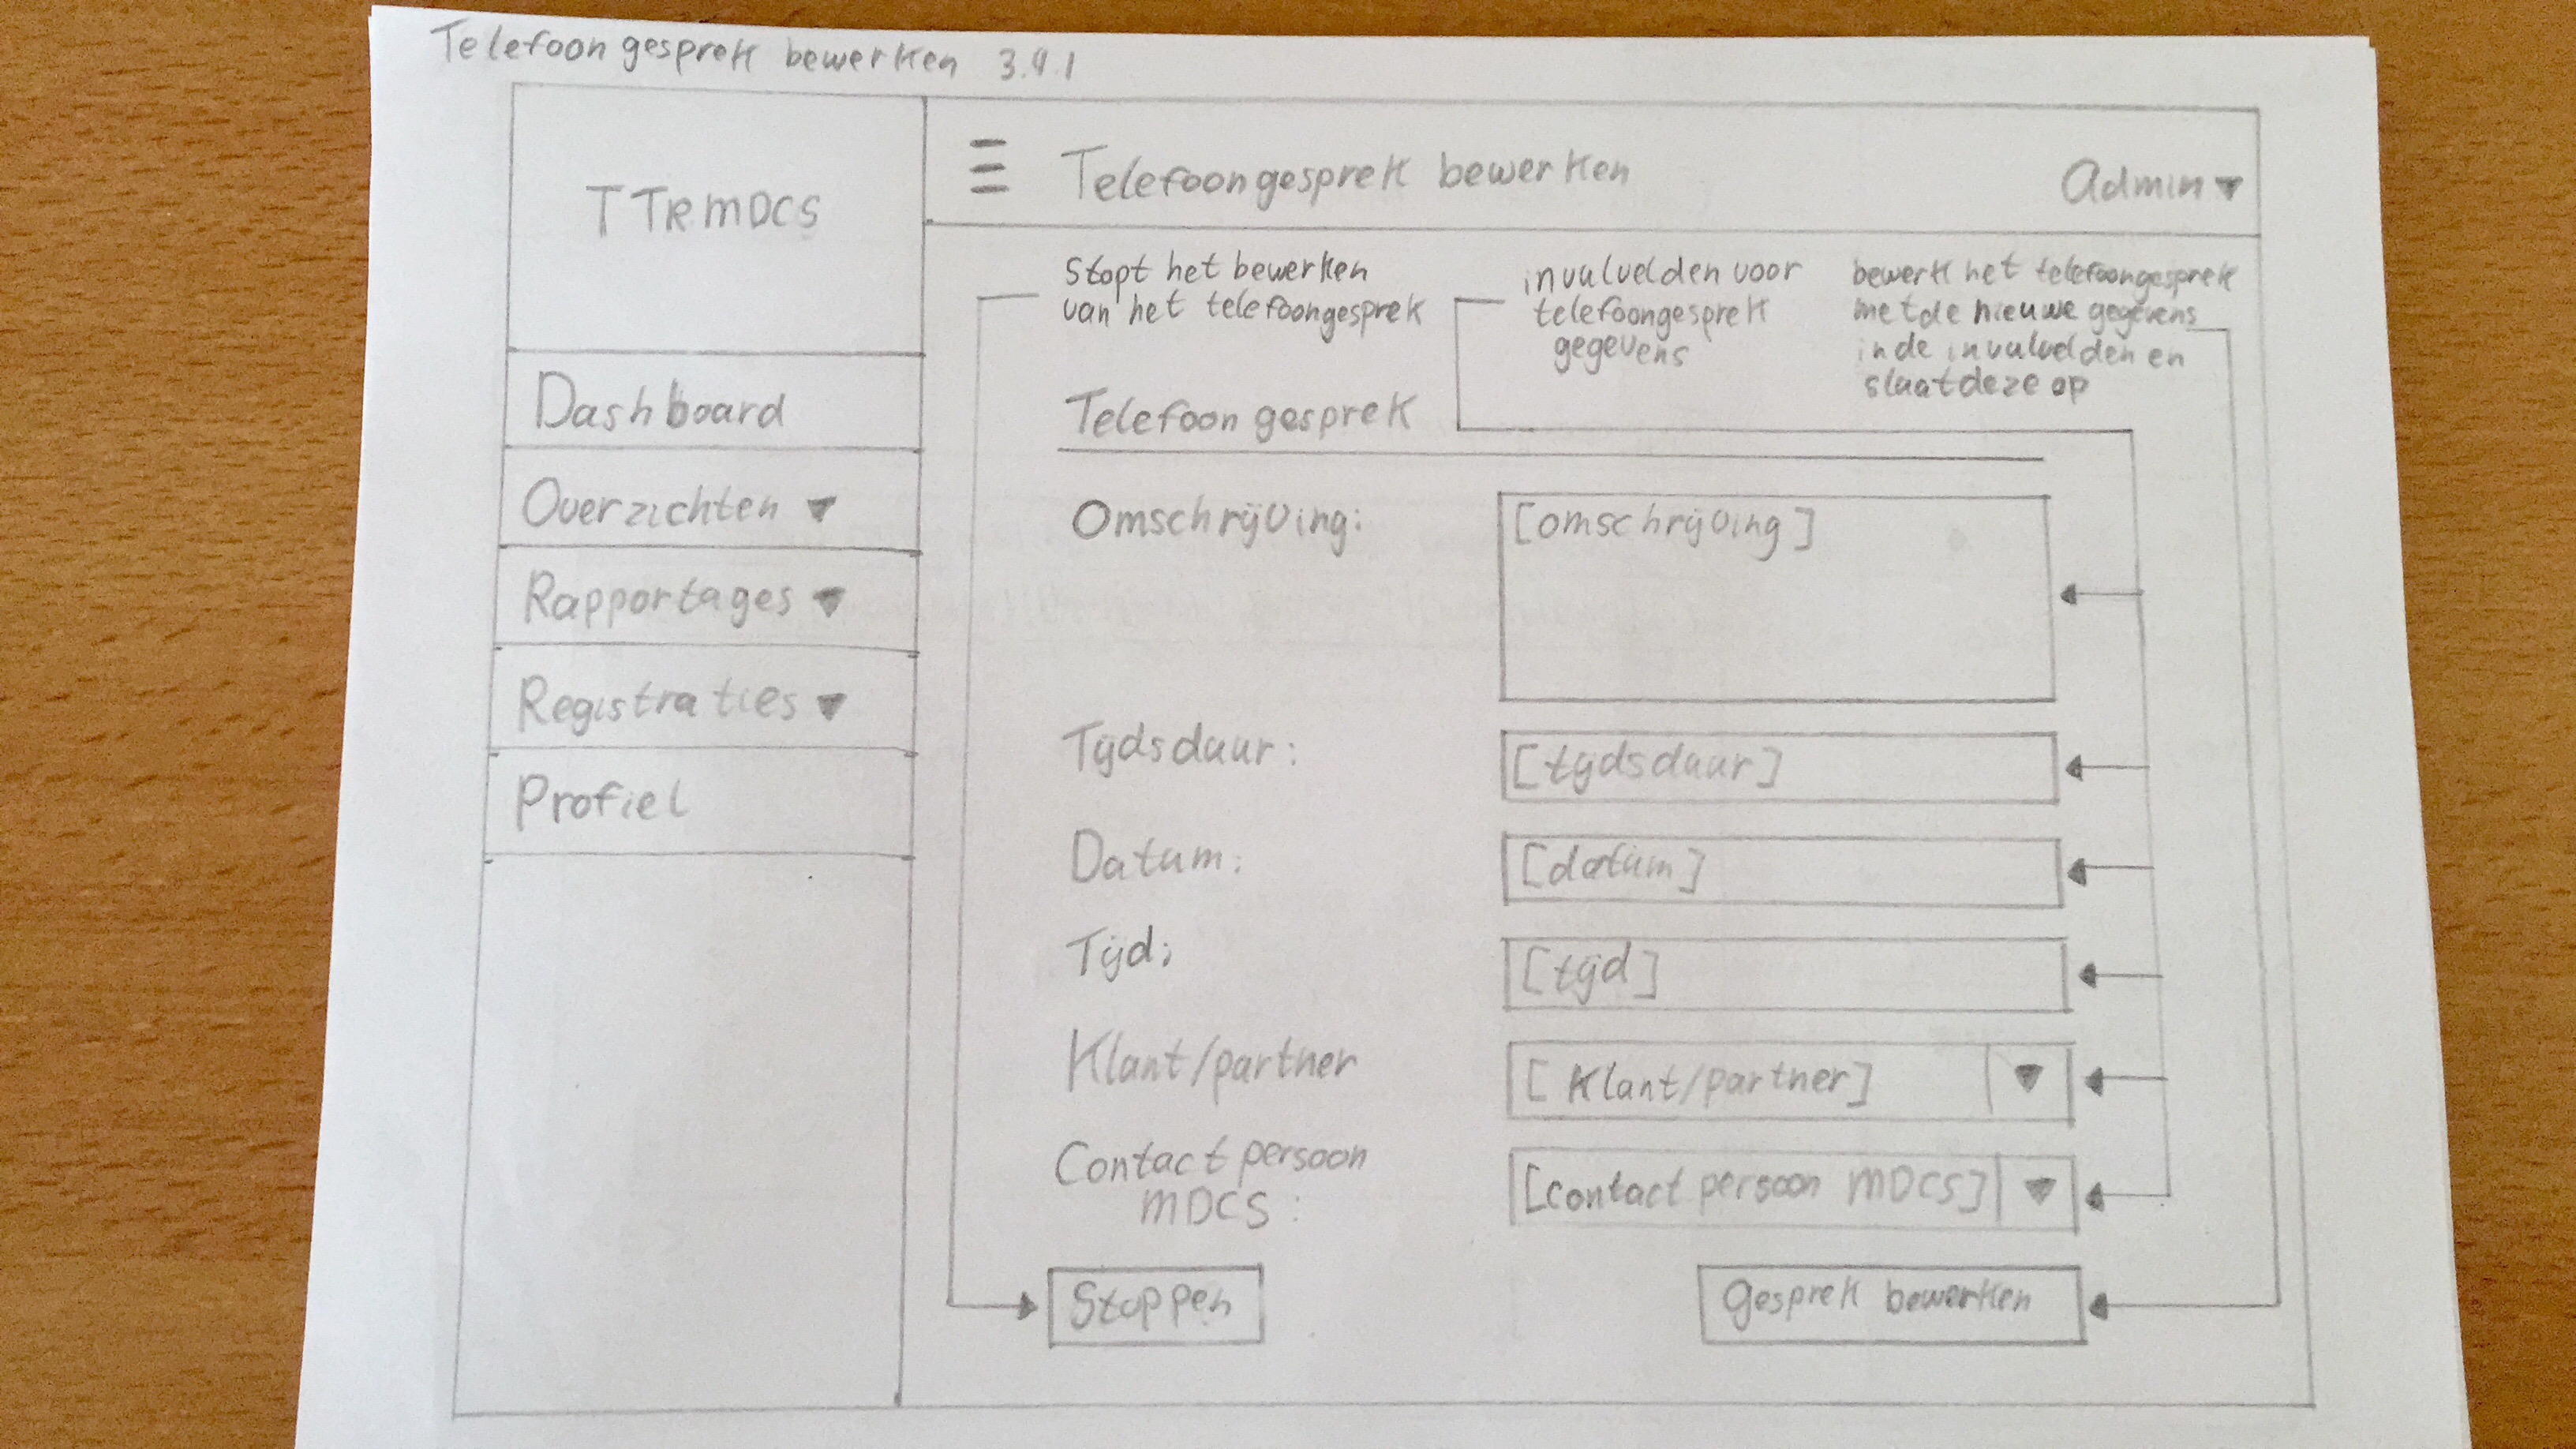 Telefoongesprek bewerken 3.4.1
TTRMDCS
Telefoongesprek bewerken
Admin
Dashboard
Overzichten
Rapportages
Registraties
Profiel
Stopt het bewerken
van het telefoongesprek
invulvelden voor
telefoongesprek
gegevens
bewerk het telefoongesprek
met de nieuwe gegevens
in de invulvelden en
slaat deze op
Telefoongesprek
Omschrijving:
[omschrijving]
Tijdsduur:
[tijdsduur]
Datum:
[datum]
Tijd:
[tijd]
Klant/partner
[Klant/partner]
Contactpersoon
MDCS:
[Contactpersoon MDCS]
Stoppen
Gesprek bewerken